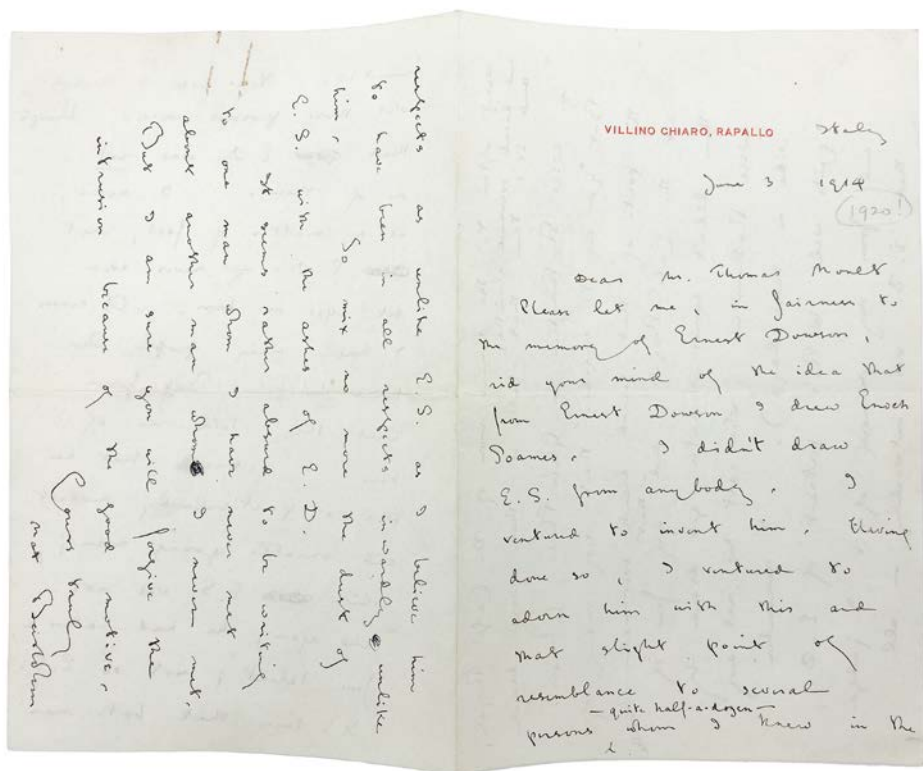 VILLINO CHIARO, RAPALLO Italy
June 3 1914
(1920!)
Dear Mr. Thomas Moult
Please let me, in fairness to
the memory of Ernest Dowson,
rid your mind of the idea that
from Ernest Dowson I drew Enoch
Soames. I didn't draw
E.S. from anybody. I
ventured to invent him. Having
done so, I ventured to
adorn him with this and
that slight point of
resemblance to several
— quite half-a-dozen —
persons whom I knew in the
respects as unlike E.S. as I believe him
to have been in all respects inwardly unlike
him. So mix no more the dust of
E.S. with the ashes of E.D.
It seems rather absurd to be writing
to one man whom I have never met
about another man whom I never met.
But I am sure you will forgive the
intrusion because of the good motive.
Yours truly
Max Beerbohm